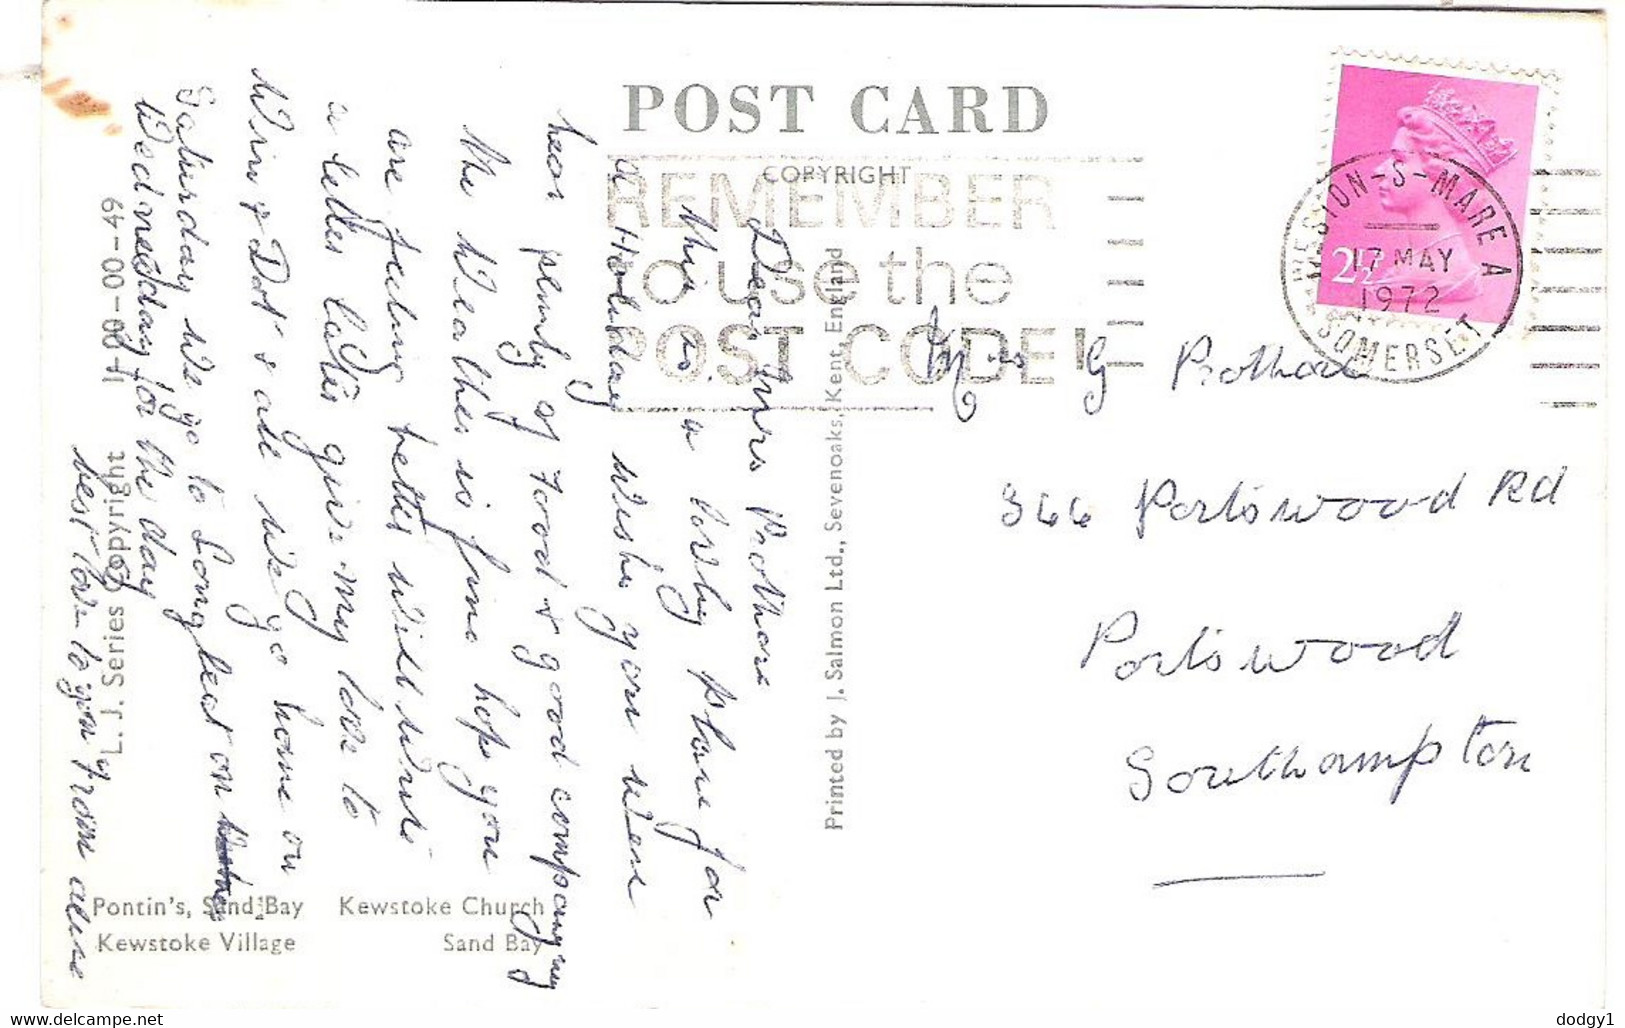 POST CARD
COPYRIGHT
REMEMBER
to use the
POST CODE!
WESTON-S-MARE A
17 MAY
1972
SOMERSET
2½P
Dear Mrs Prothero
this is a lovely place for
a Holiday wish you were
hear plenty of food & good company
the Weather is fine hope you
are feeling better will write
a letter later give my love to
Win & Dot & all we go home on
Saturday we go to Longleat on
Wednesday for the day
best love to you from
Mrs G Prothero
366 Portswood Rd
Portswood
Southampton
Printed by J. Salmon Ltd., Sevenoaks, Kent, England
L. J. Series Copyright 1-00-00-49
Pontin's, Sand Bay Kewstoke Church
Kewstoke Village Sand Bay
delcampe.net
dodgy1